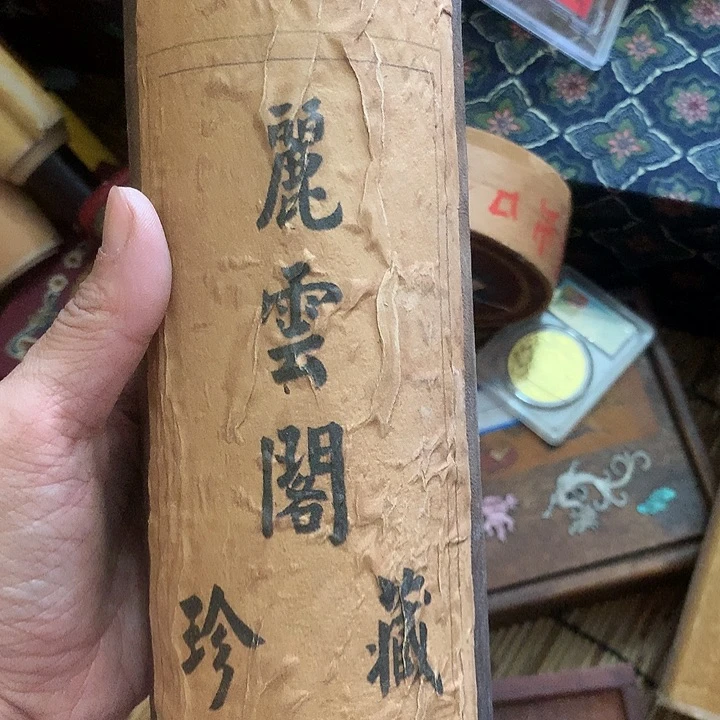 麗雲閣
珍藏